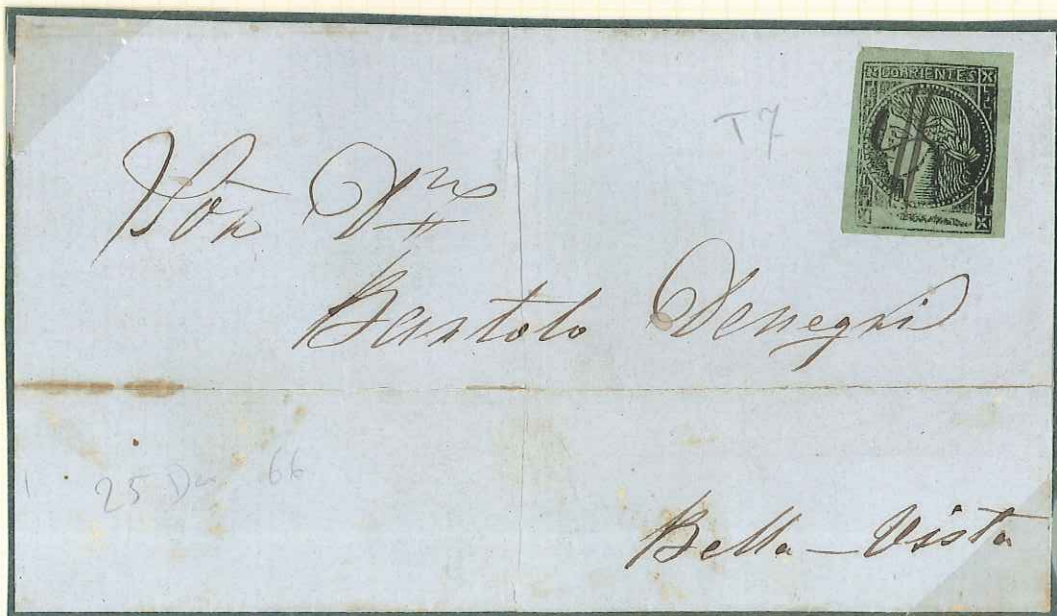 CORRIENTES
T7
Sõr Dn
Bartolo Denegri
25 Dec 66
Bella - Vista